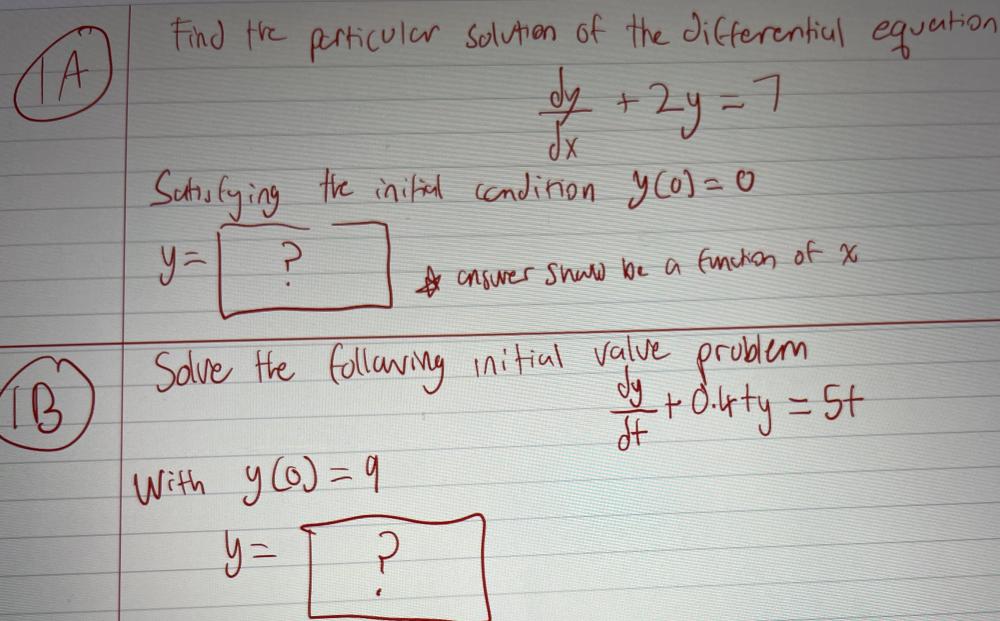 1A
Find the particular solution of the differential equation
dy/dx + 2y = 7
Satisfying the initial condition y(0) = 0
y = ?
* answer should be a function of x
1B
Solve the following initial value problem
dy/dt + 0.4ty = 5t
With y(0) = 9
y = ?